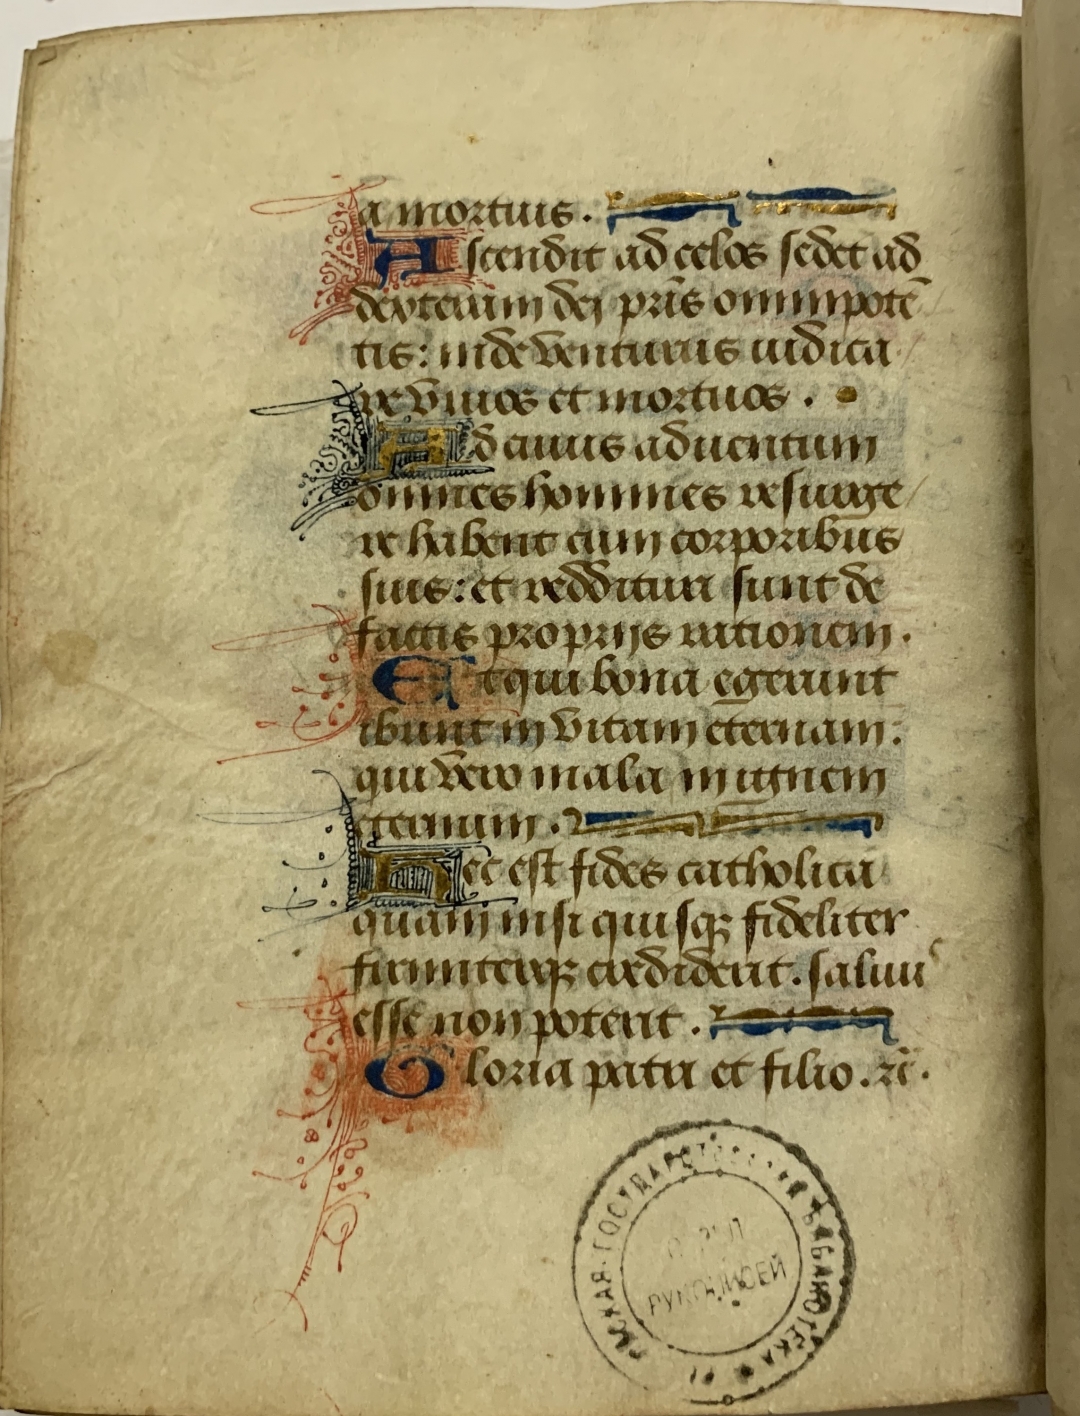 a mortuis.
Ascendit ad celos sedet ad
dexteram dei pr̄is omnipotē
tis: inde venturus iudica
re vivos et mortuos.
Ad cuius adventum
omnes homines resurge
re habent cum corporibus
suis: et reddituri sunt de
factis proprijs rationem.
Et qui bona egerunt
ibunt in vitam eternam:
qui vero mala in ignem
eternum.
Hec est fides catholica
quam nisi quisqꝫ fideliter
firmiterqꝫ crediderit. salvu
esse non poterit.
Gloria patri et filio. ⁊c̄.
ГОСУДАРСТВЕННАЯ БИБЛИОТЕКА
ОТДЕЛ
РУКОПИСЕЙ